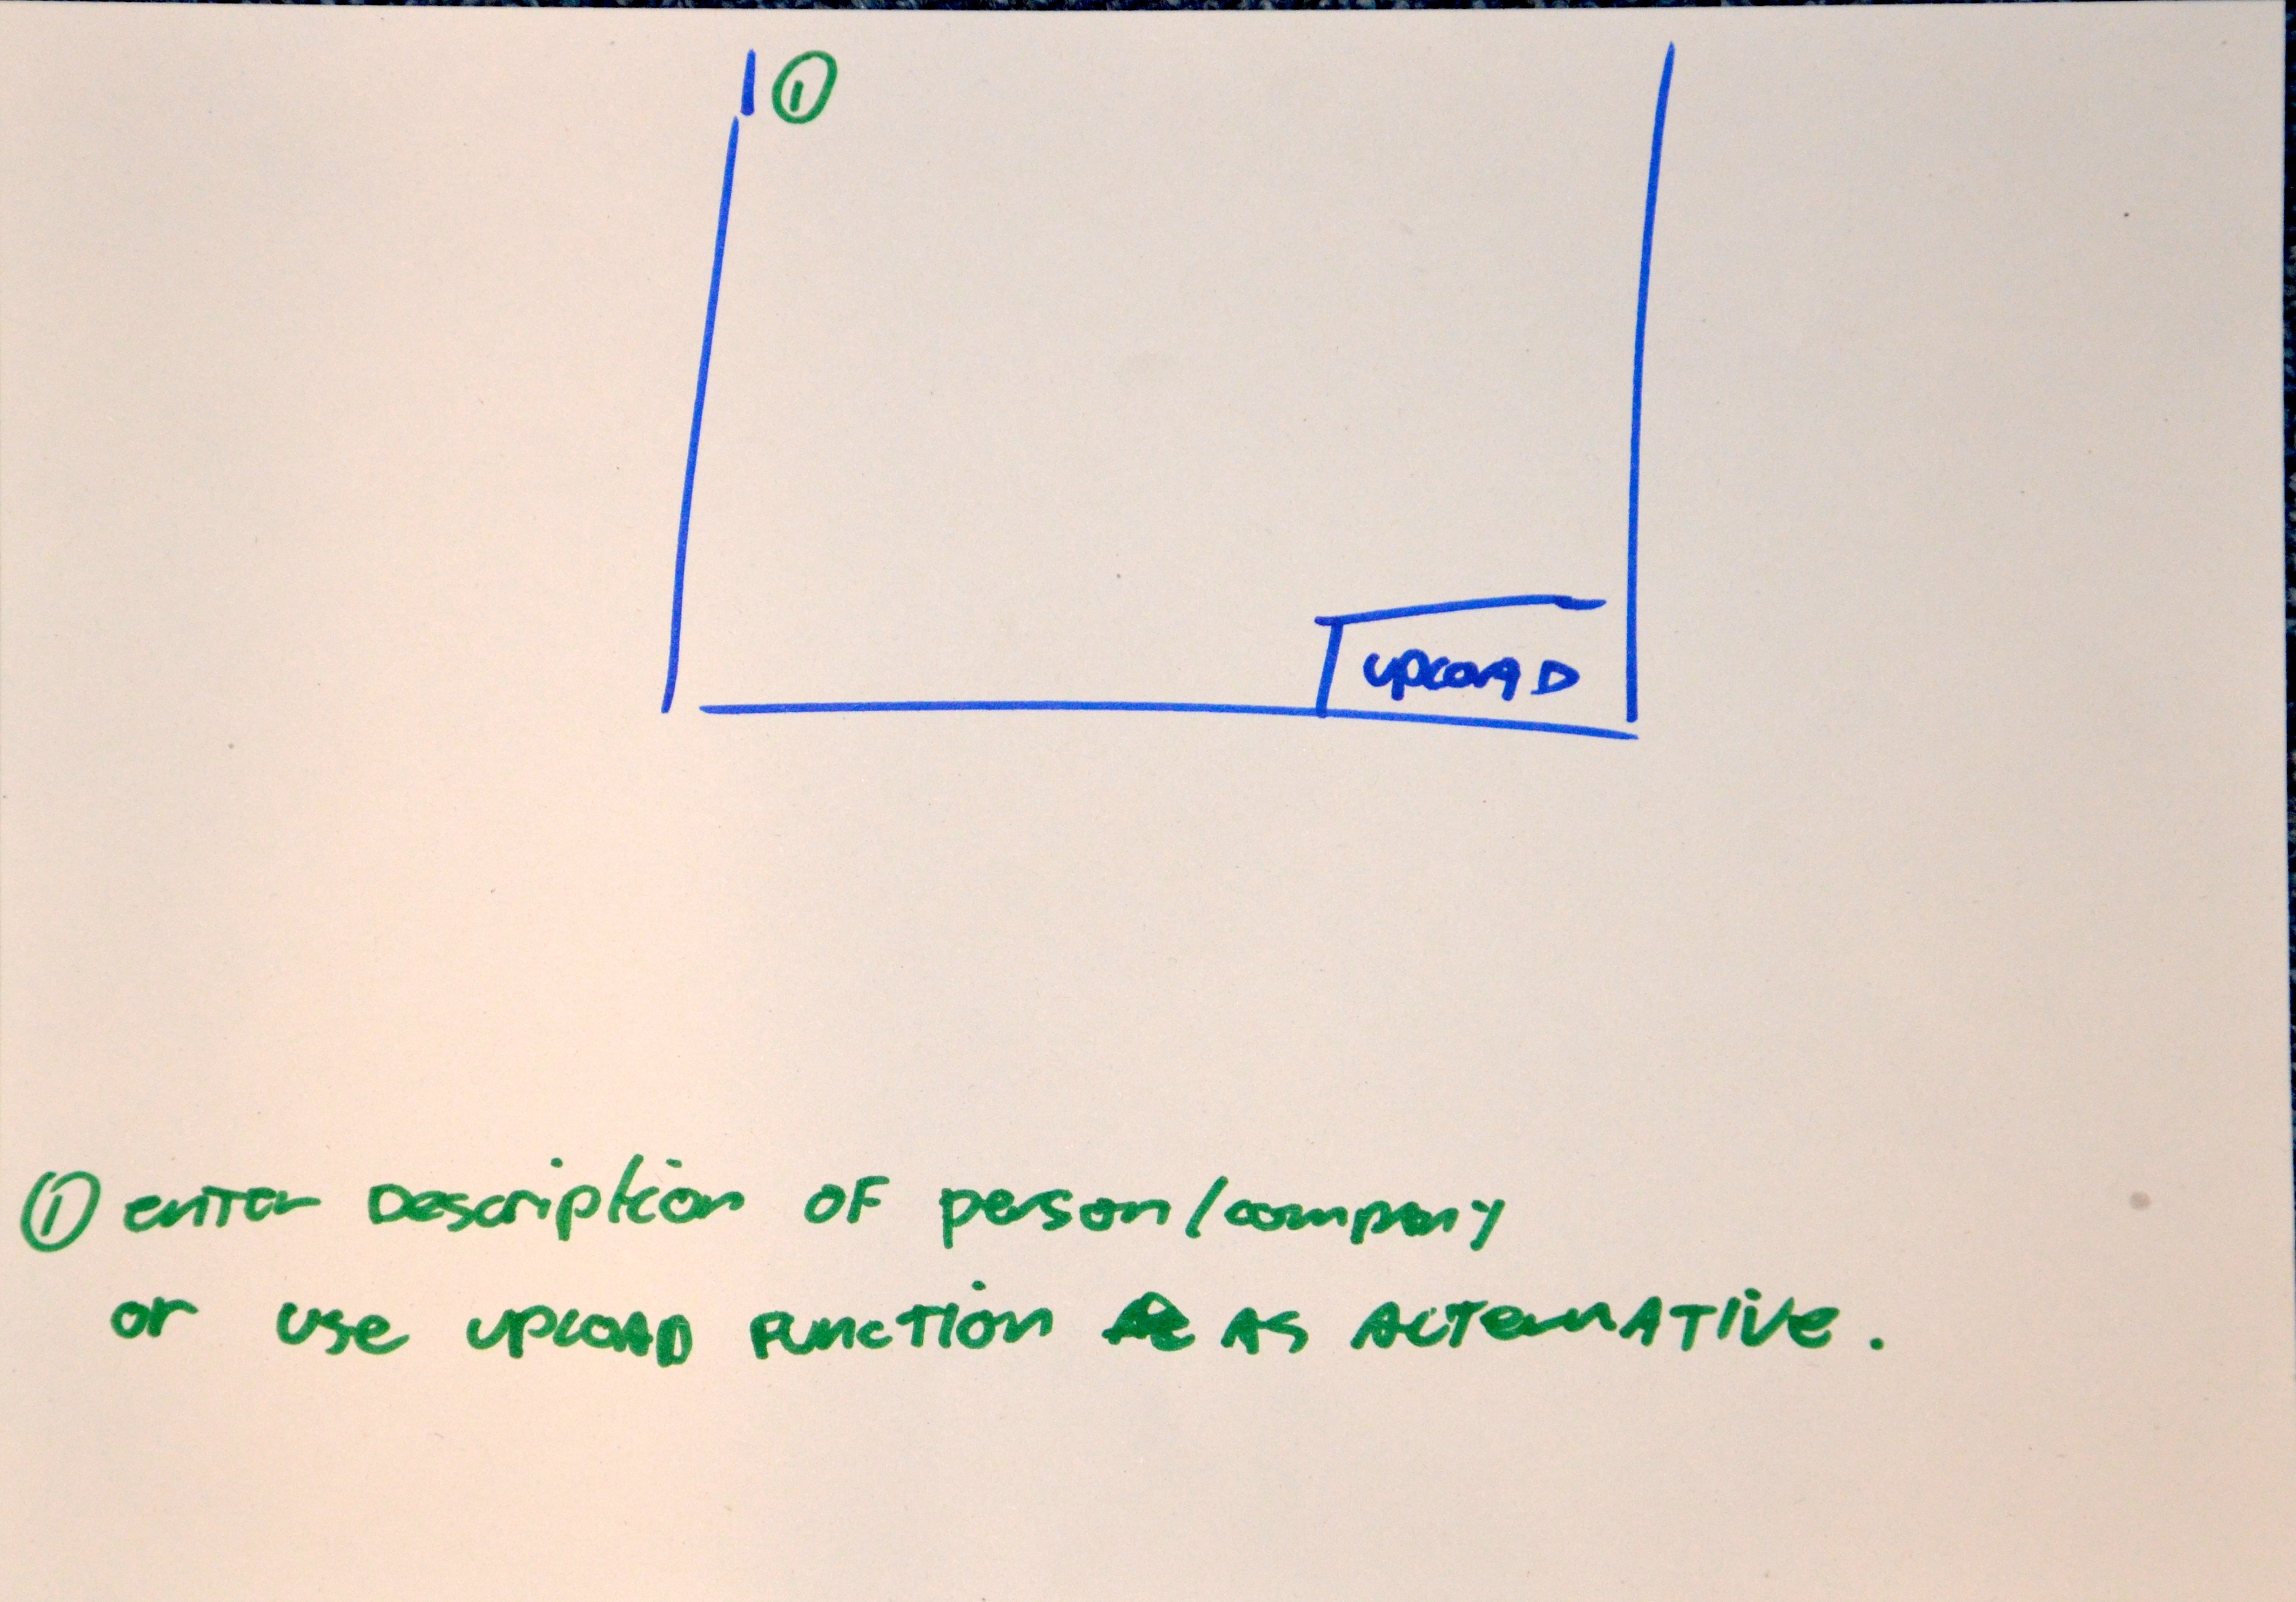 ①
UPLOAD
① enter Description OF person/company
or use UPLOAD FUNCTION AS ALTERNATIVE.